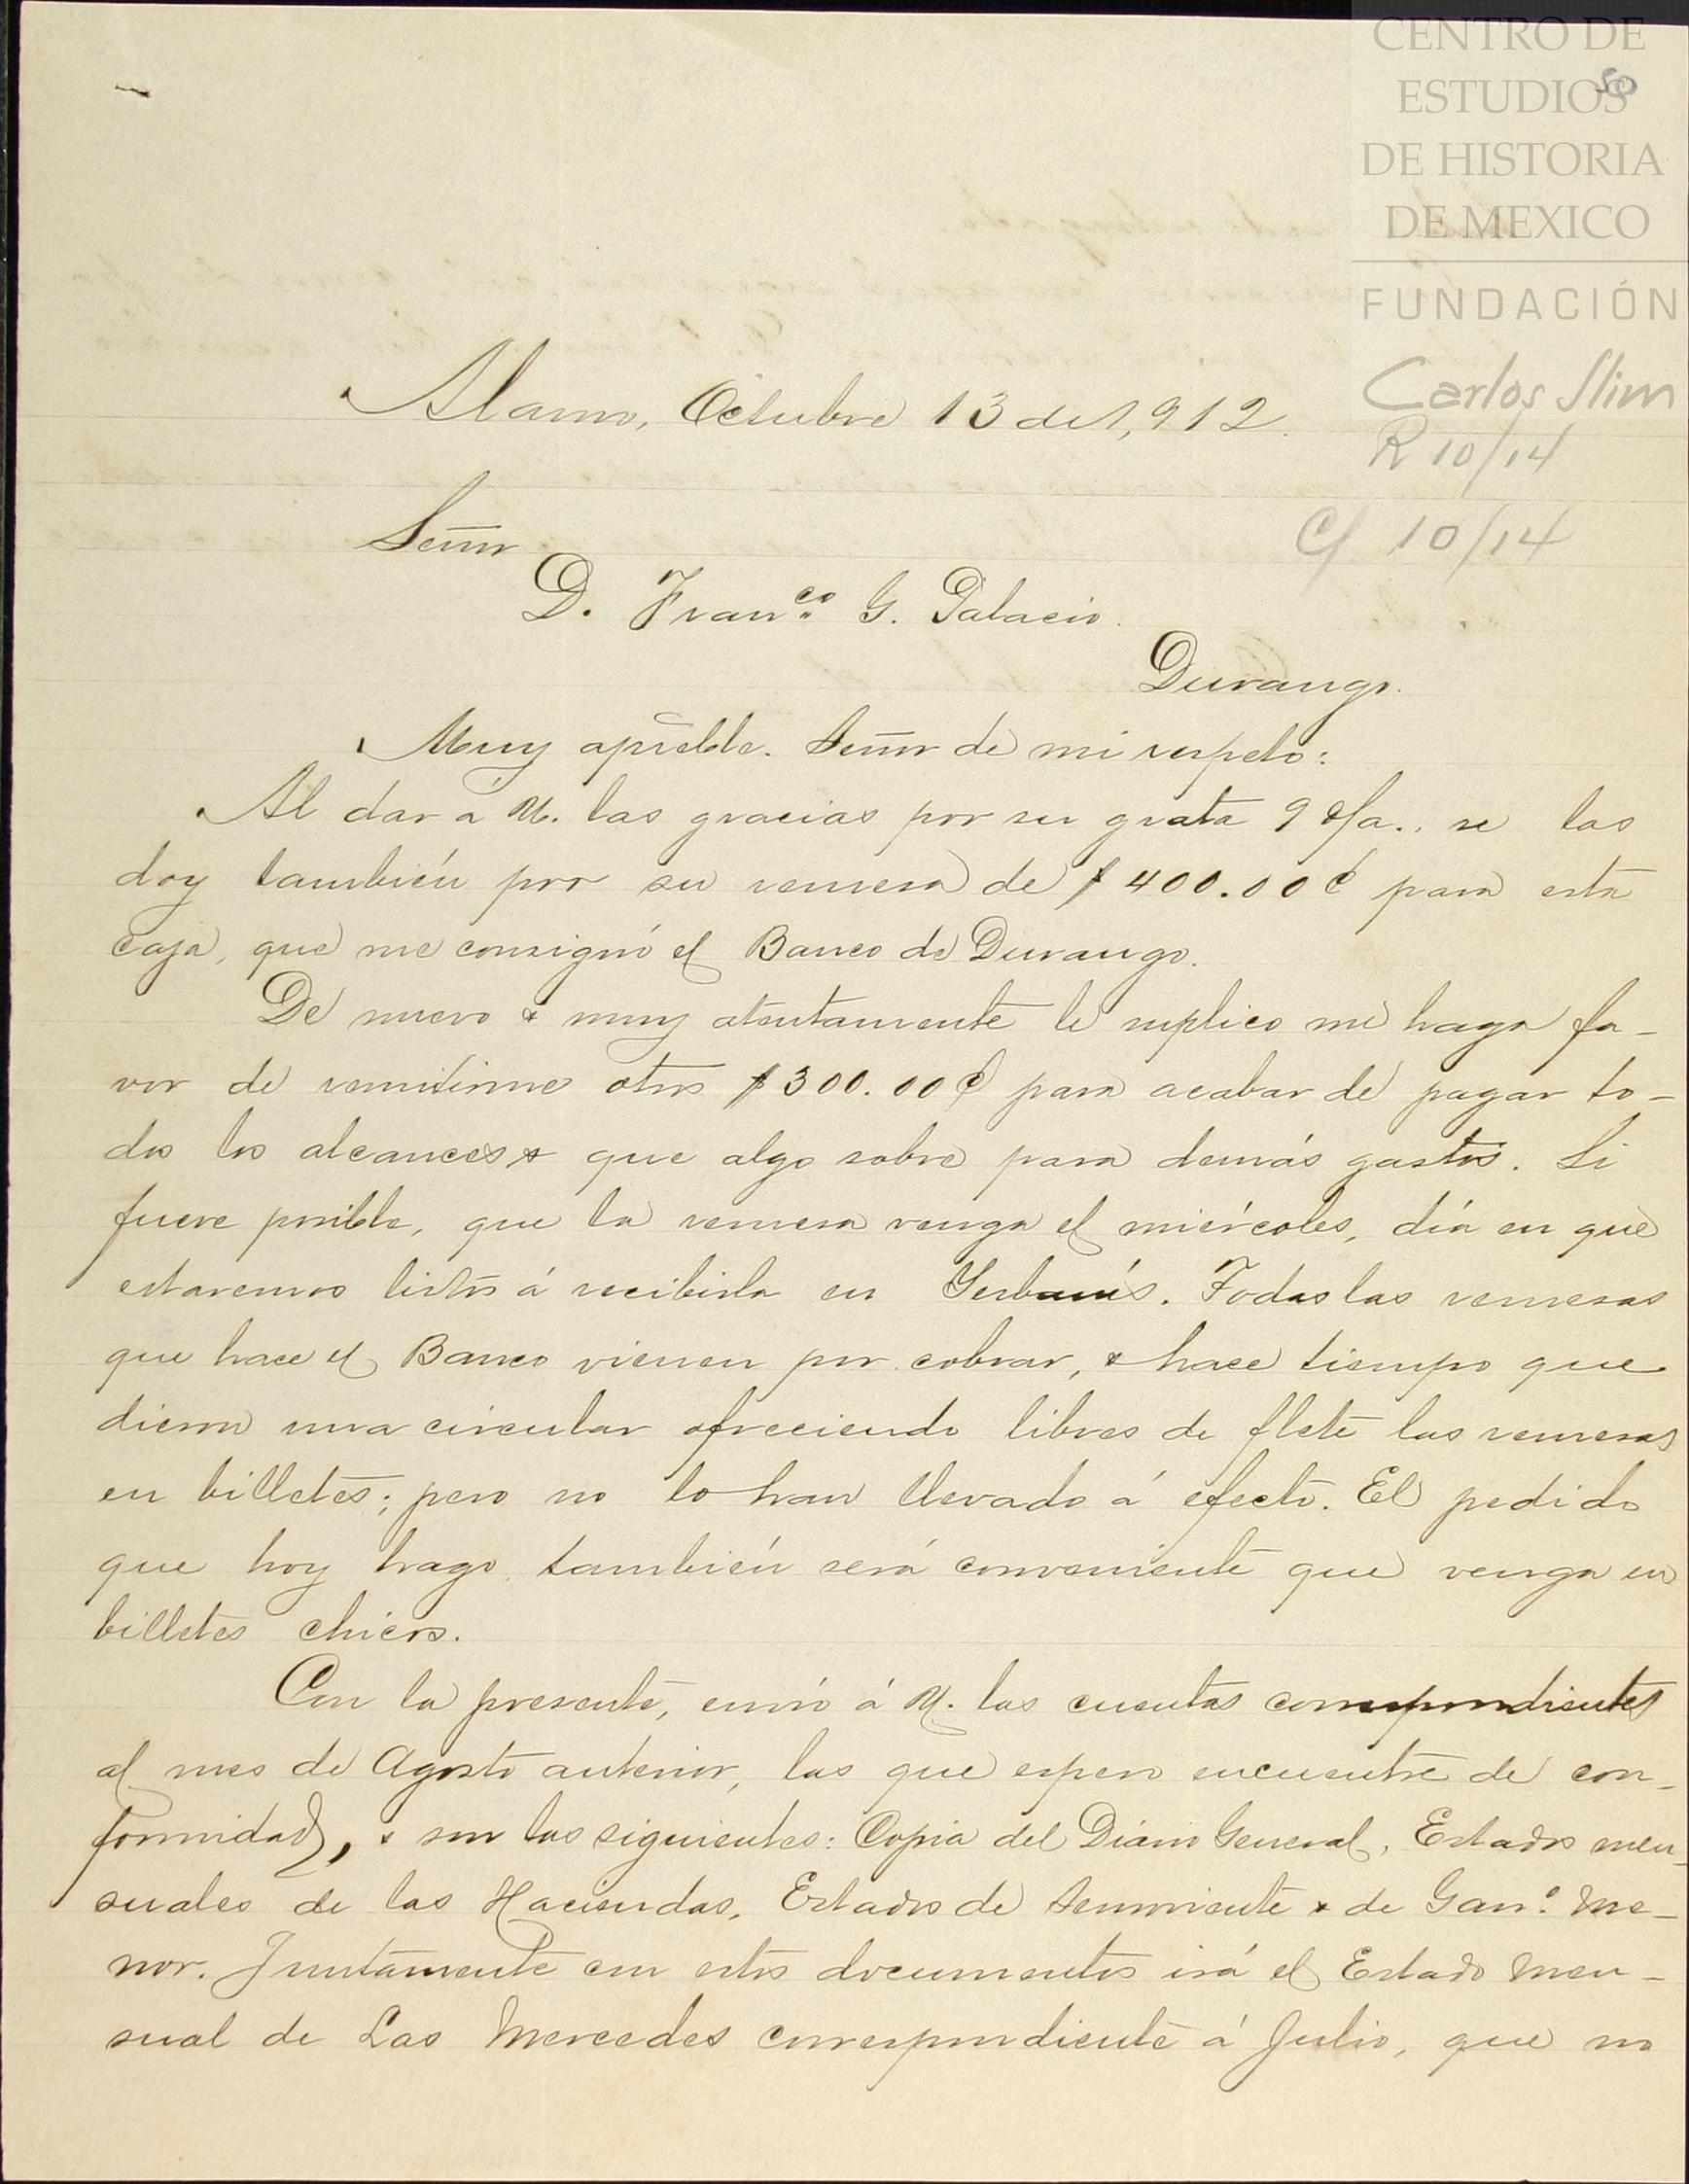 CENTRO DE
ESTUDIOS
DE HISTORIA
DE MEXICO
FUNDACIÓN
Carlos Slim
50
R 10/14
C/ 10/14
Alamo, Octubre 13 de 1,912.
Señor
D. Franco. G. Palacio.
Durango.
Muy apreble. Señor de mi respeto:
Al dar á U. las gracias por su grata 9 c/a., se las
doy también por su remesa de $400.00¢ para esta
caja, que me consignó el Banco de Durango.
De nuevo & muy atentamente le suplico me haga fa-
vor de remitirme otros $300.00¢ para acabar de pagar to-
dos los alcances & que algo sobre para demás gastos. Si
fuere posible, que la remesa venga el miércoles, día en que
estaremos listos á recibirla en Yerbanís. Todas las remesas
que hace el Banco vienen por cobrar, & hace tiempo que
dieron una circular ofreciendo libres de flete las remesas
en billetes; pero no lo han llevado á efecto. El pedido
que hoy hago, también será conveniente que venga en
billetes chicos.
Con la presente, envío á U. las cuentas correspondientes
al mes de Agosto anterior, las que espero encuentre de con-
formidad, & son las siguientes: Copia del Diario General, Estados men-
suales de las Haciendas, Estados de Semoviente & de Gano. Me-
nor. Juntamente con estos documentos irá el Estado Men-
sual de Las Mercedes correspondiente á Julio, que no